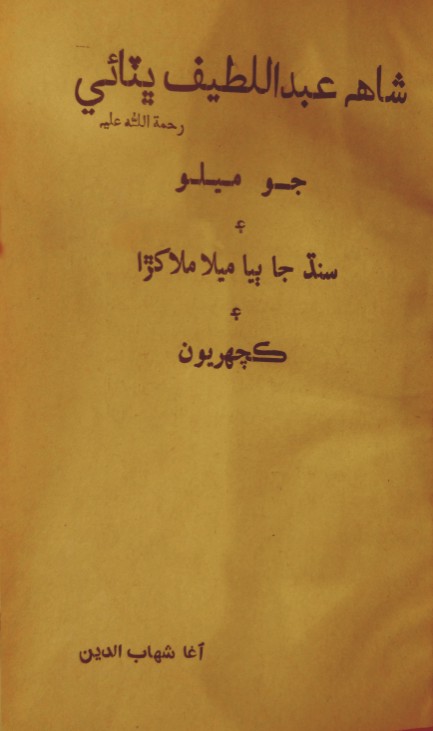 شاهہ عبداللطيف ڀٽائي
رحمة اللہ عليہ
جو ميلو
۽
سنڌ جا ٻيا ميلا ملاکڙا
۽
ڪچهريون
آغا شهاب الدين